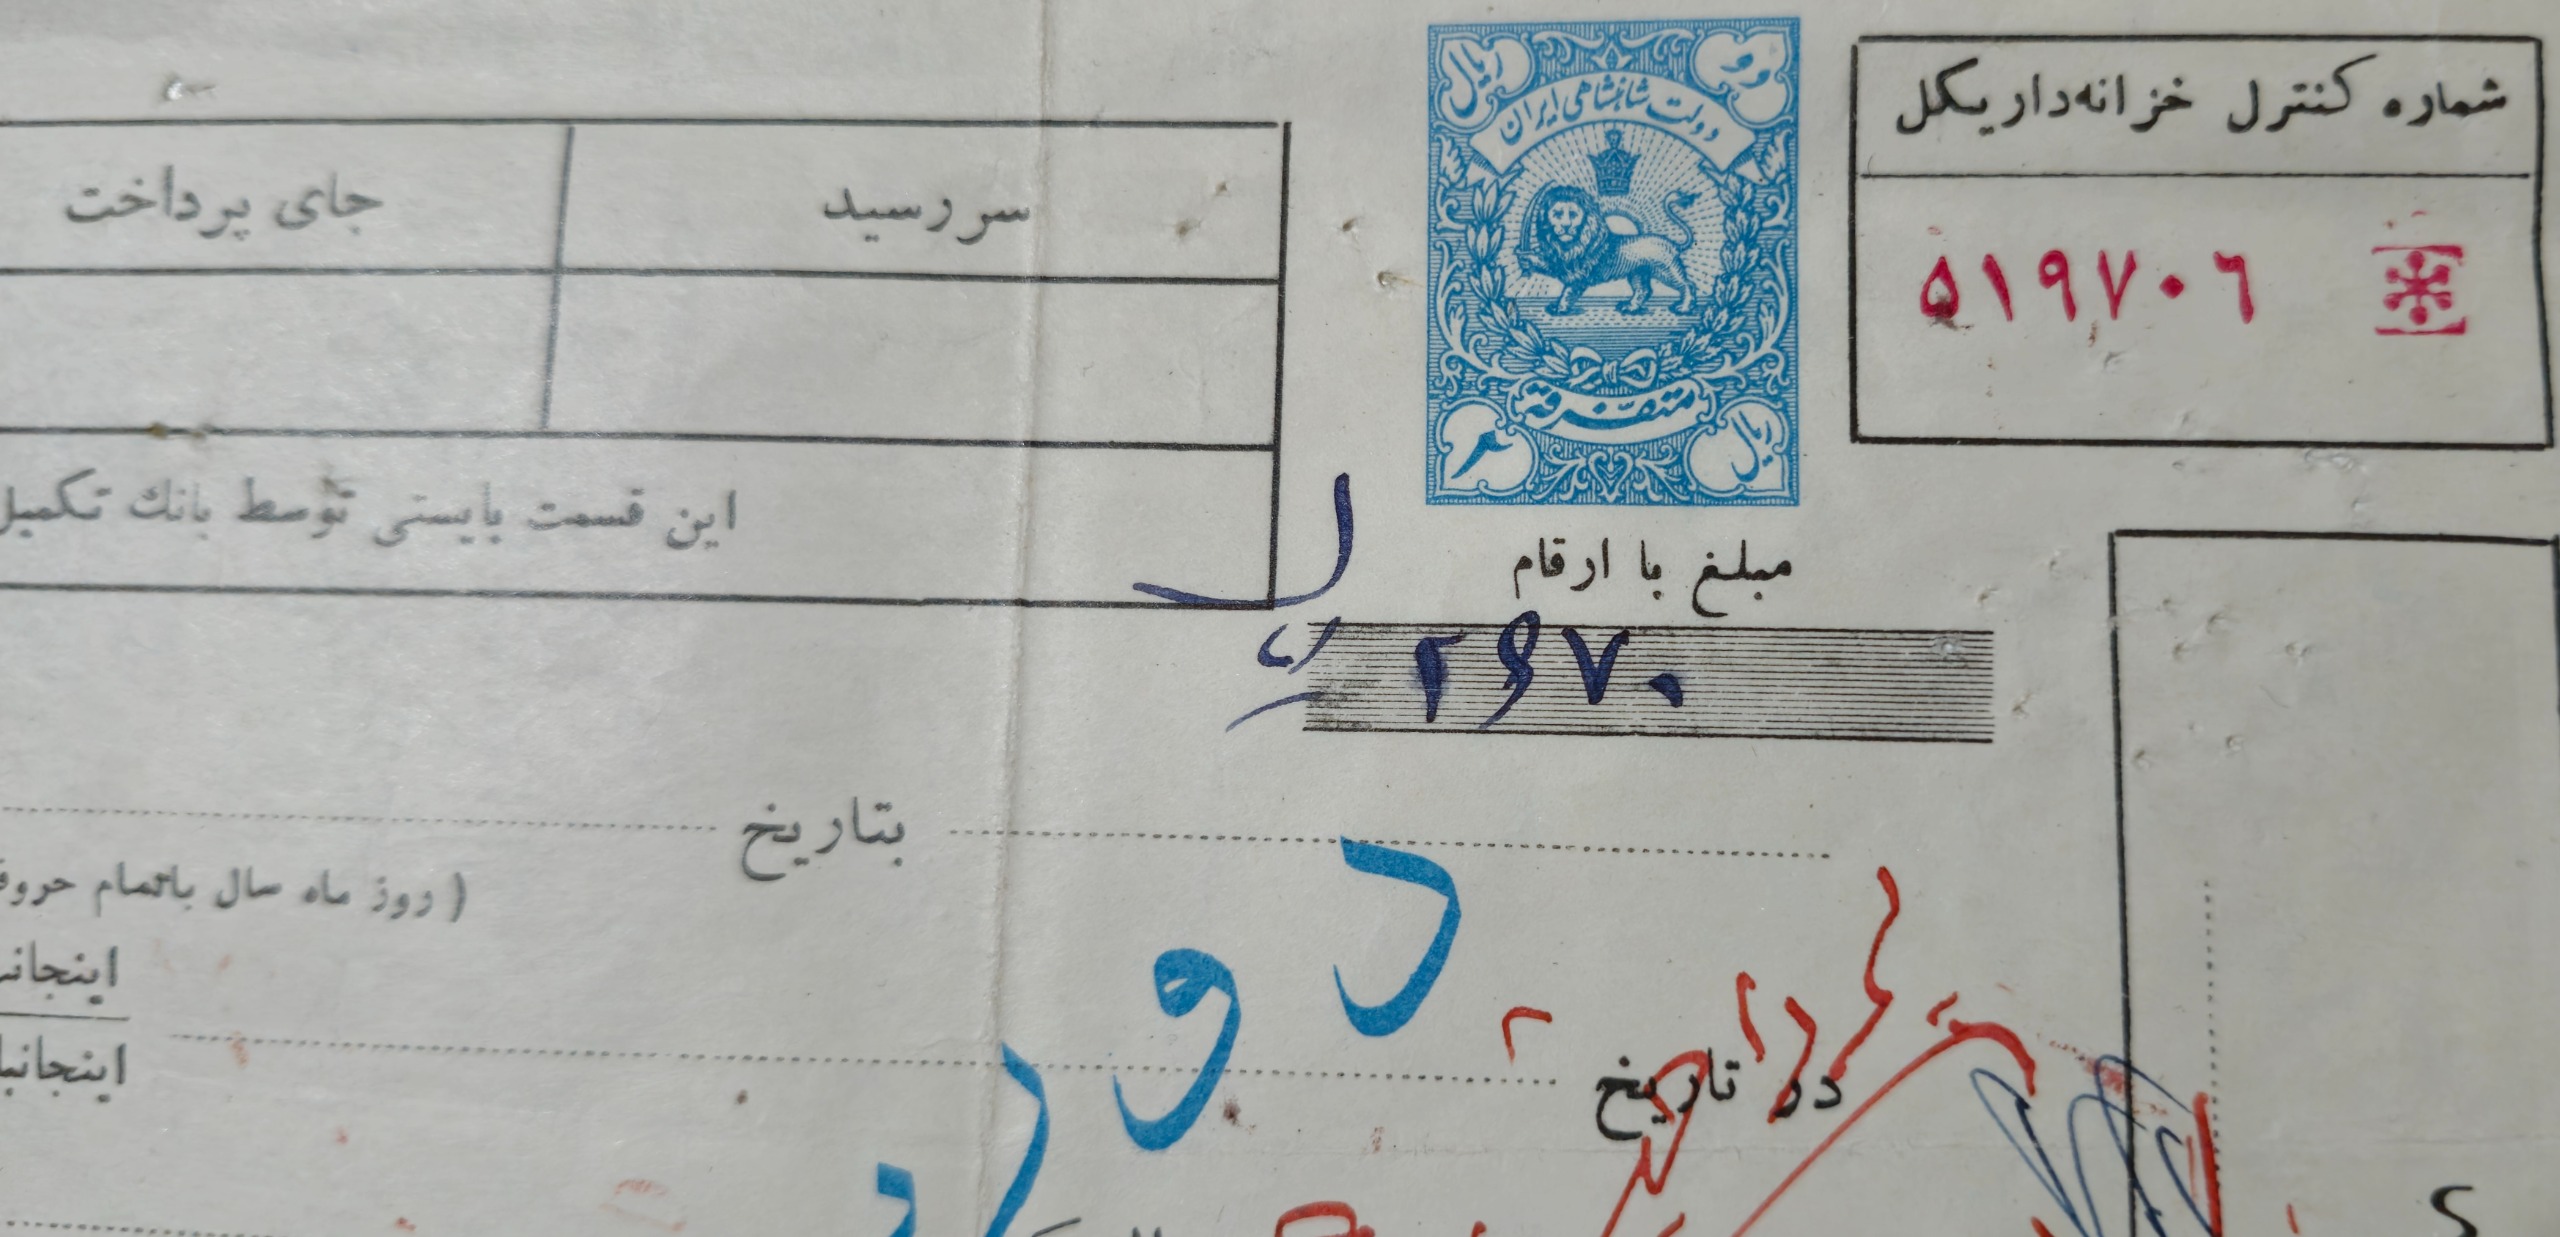 شماره کنترل خزانه‌داریکل
۵۱۹۷۰۶
دو ریال
دولت شاهنشاهی ایران
متفرقه
۲ ریال
سررسید
جای پرداخت
این قسمت بایستی توسط بانک تکمیل
مبلغ با ارقام
۲۶۷۰
بتاریخ
( روز ماه سال باتمام حروف
در تاریخ